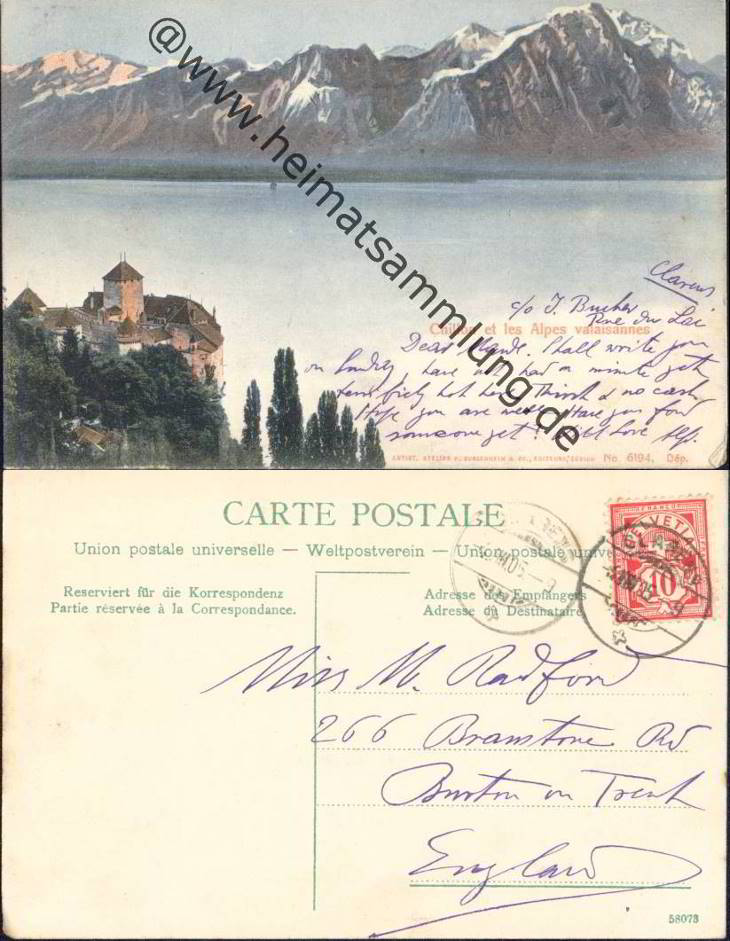 @www.heimatsammlung.de
Clarens
c/o J. Bucher
Rue du Lac
Chillon et les Alpes valaisannes
Dear Maude. Shall write you
on Sunday, have not had a minute yet
terribly hot here. Thirst & no cash
Hope you are well. Have you found
someone yet? love
No. 6194. Dép.
CARTE POSTALE
Union postale universelle — Weltpostverein — Union postale universelle
Reserviert für die Korrespondenz
Partie réservée à la Correspondance.
Adresse des Empfängers
Adresse du Destinataire
FRANCO
HELVETIA
CLARENS
10
Miss M. Radford
266 Branstone Rd
Burton on Trent
England
58073